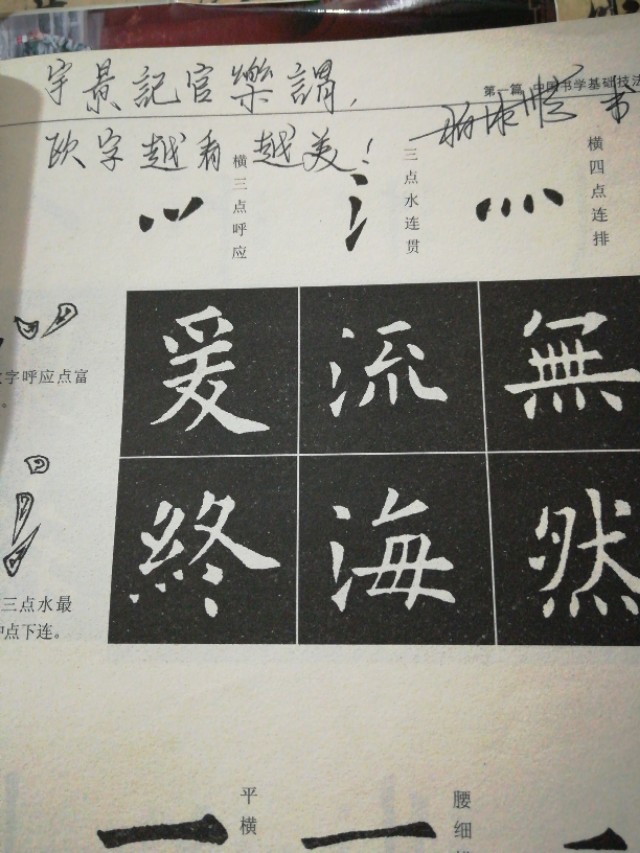 宇景記官樂謂，
第一篇 中国书学基础技法
欧字越看越美！
书
横三点呼应
三点水连贯
横四点连排
字呼应点富
。
爰流無
終海然
三点水最
中点下连。
平横
腰细